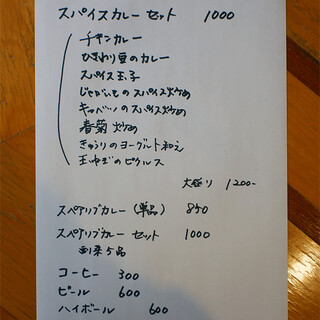 スパイスカレーセット 1000
チキンカレー
ひきわり豆のカレー
スパイス玉子
じゃがいものスパイス炒め
キャベツのスパイス炒め
春菊炒め
きゅうりのヨーグルト和え
玉ねぎのピクルス
大盛り 1200-
スペアリブカレー(単品) 850
スペアリブカレーセット 1000
副菜5品
コーヒー 300
ビール 600
ハイボール 600